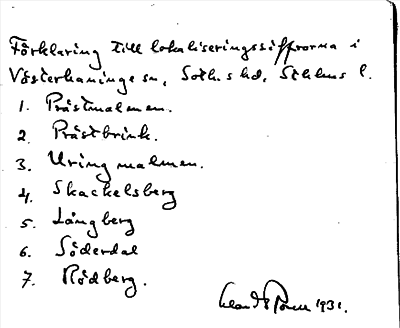 Förklaring till lokaliseringssiffrorna i
Västerhaninge sn, Soth.s hd, Sthlms l.
1. Prästmalmen.
2. Prästbrink.
3. Uringmalmen.
4. Skackelsberg
5. Långberg
6. Söderdal
7. Rödberg.
1931.